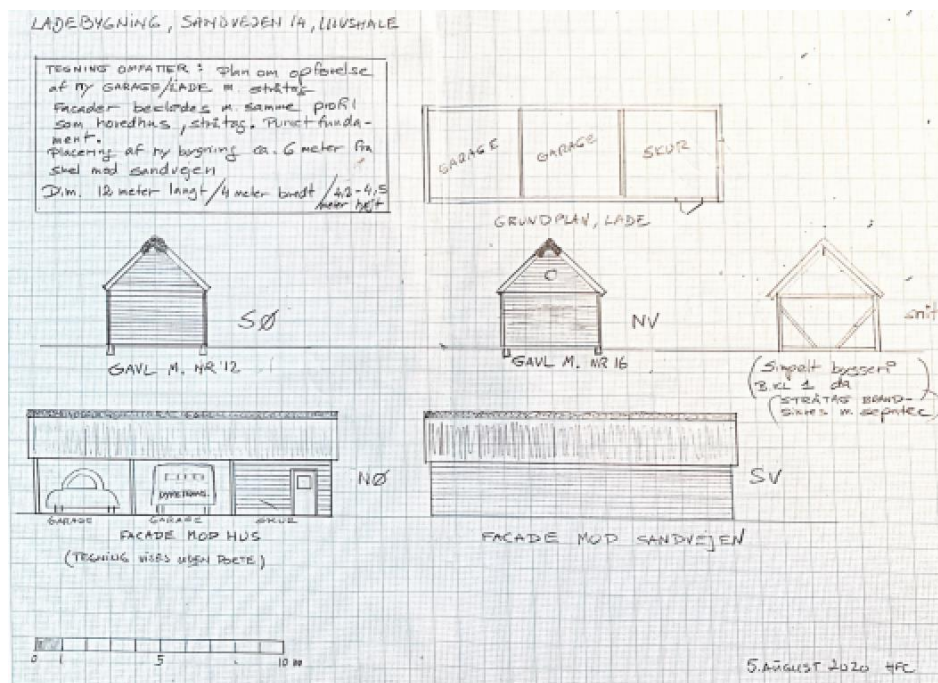 LADEBYGNING, SANDVEJEN 14, ULVSHALE
TEGNING OMFATTER: Plan om opførelse
af ny GARAGE/LADE m. stråtag
Facader beclædes m. samme profil
som hovedhus, stråtag. Punct funda-
ment.
Placering af ny bygning ca. 6 meter fra
skel mod sandvejen
Dim. 12 meter langt/4 meter bredt/4,2-4,5
meter højt
GARAGE
GARAGE
SKUR
GRUNDPLAN, LADE
SØ
GAVL M. NR 12
NV
GAVL M. NR 16
snit
(Simpelt byggeri
B.KL 1 da
(STRÅTAG BRAND-
sikres m. sepatec)
DYRETRANS.
GARAGE
GARAGE
SKUR
NØ
FACADE MOD HUS
(TEGNING VISES UDEN PORTE)
SV
FACADE MOD SANDVEJEN
0 1 5 10 m
5. AUGUST 2020 HFC